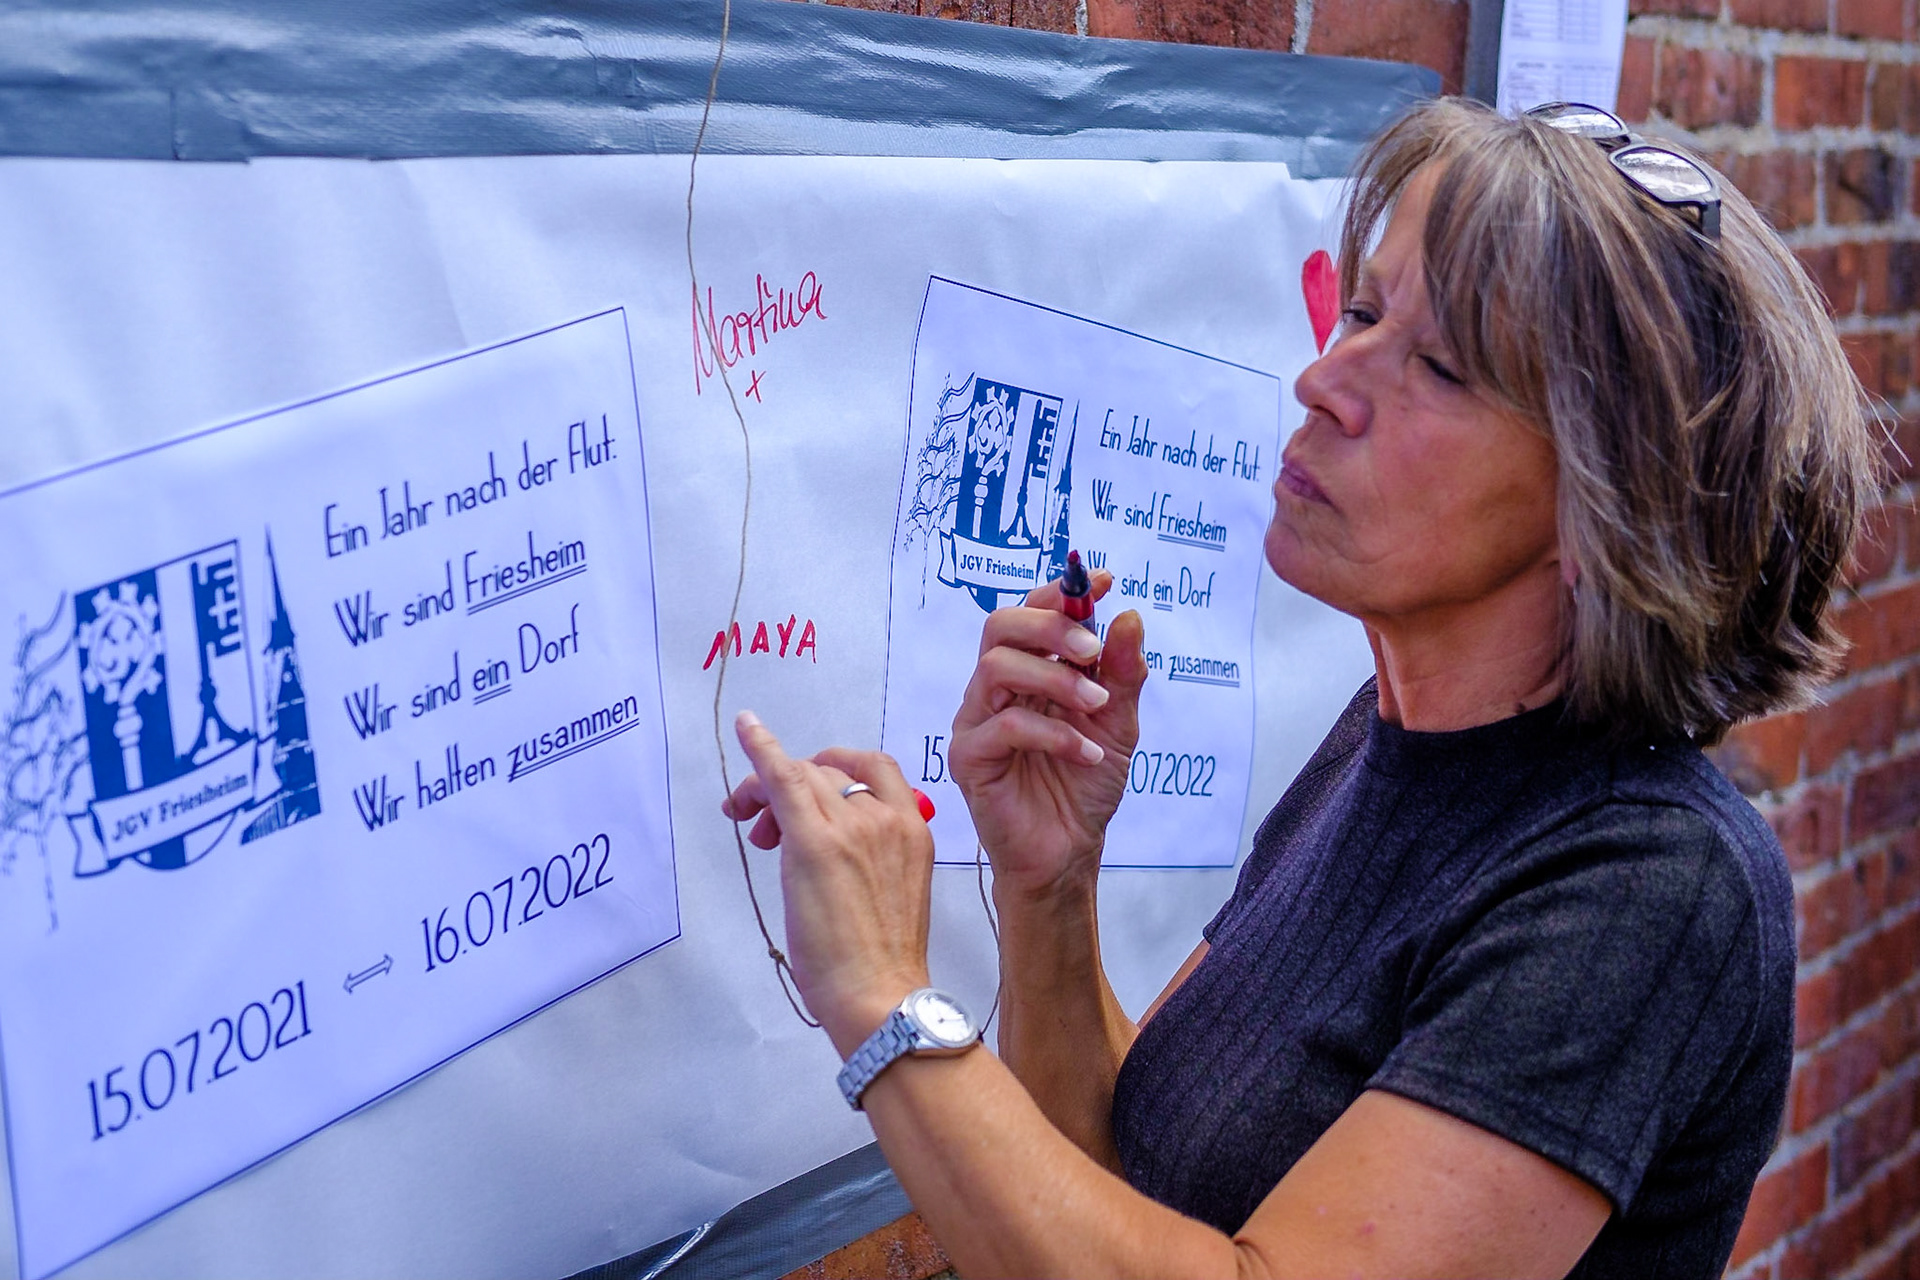 Ein Jahr nach der Flut:
Wir sind Friesheim
Wir sind ein Dorf
Wir halten zusammen
JGV Friesheim
15.07.2021 ⇔ 16.07.2022
Martina
+
MAYA
Ein Jahr nach der Flut:
Wir sind Friesheim
sind ein Dorf
zusammen
JGV Friesheim
15. .07.2022